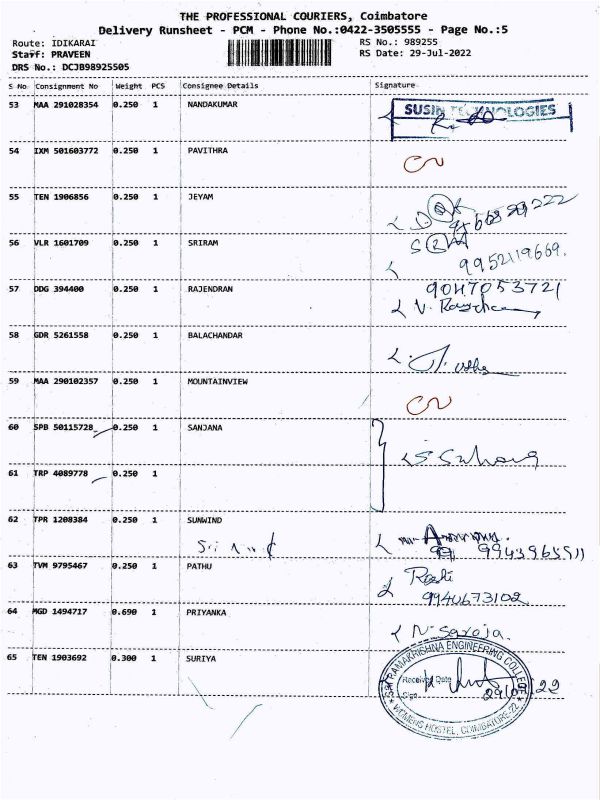 THE PROFESSIONAL COURIERS, Coimbatore
Delivery Runsheet - PCM - Phone No.:0422-3505555 - Page No.:5
Route: IDIKARAI RS No.: 989255
Staff: PRAVEEN RS Date: 29-Jul-2022
DRS No.: DCJB98925505
S No Consignment No Weight PCS Consignee Details Signature
53 MAA 291028354 0.250 1 NANDAKUMAR
SUSIN TECHNOLOGIES
54 IXM 501603772 0.250 1 PAVITHRA
55 TEN 1906856 0.250 1 JEYAM
56 VLR 1601709 0.250 1 SRIRAM
9952119669.
57 DDG 394400 0.250 1 RAJENDRAN 9047053721
58 GDR 5261558 0.250 1 BALACHANDAR
59 MAA 290102357 0.250 1 MOUNTAINVIEW
60 SPB 50115728 0.250 1 SANJANA
61 TRP 4089778 0.250 1
62 TPR 1208384 0.250 1 SUNWIND
63 TVM 9795467 0.250 1 PATHU
9940673102
64 MGD 1494717 0.690 1 PRIYANKA
N. Saroja.
65 TEN 1903692 0.300 1 SURIYA
SRI RAMAKRISHNA ENGINEERING COLLEGE
Received Date
Sign
WOMENS HOSTEL, COIMBATORE-22